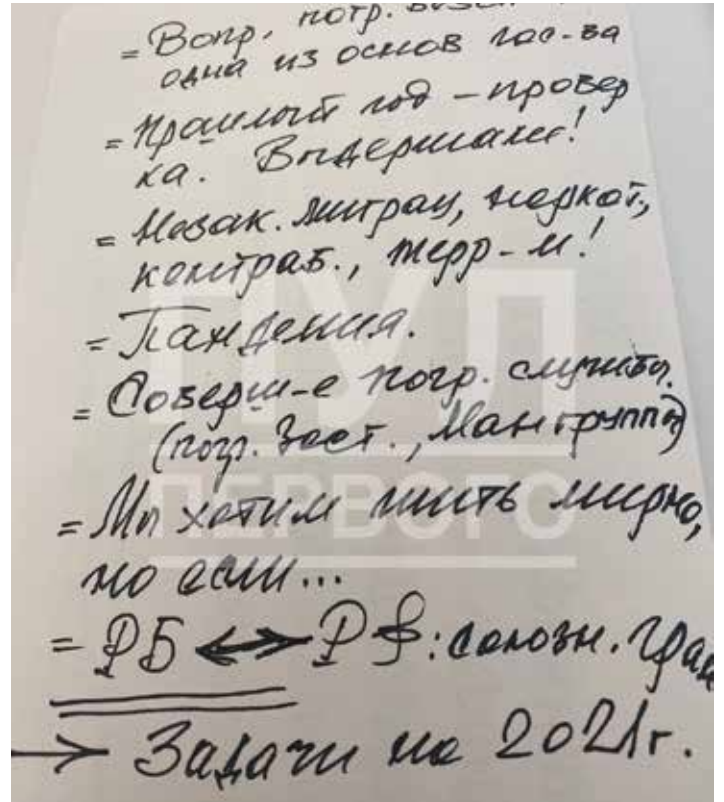 = Вопр. погр. безоп
одна из основ гос-ва
= Прошлый год – провер
ка. Выдержали!
= Незак. миграц, наркот.,
контраб., терр-м!
= Пандемия.
= Соверш-е погр. службы.
(погр. заст., Ман группа)
= Мы хотим жить мирно,
но если...
= РБ ↔ РФ: союзн. гран
→ Задачи на 2021г.
ПУЛ
ПЕРВОГО